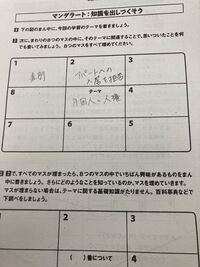 マンダラート:知識を出しつくそう
1 下図のまん中に、今回の学習のテーマを書きましょう。
2 次に、まわりの8つのマスの中に、そのテーマに関連することで、思いついたことを何でも書いてみましょう。8つのマスをすべて埋めてください。
1
2
3
差別
アパートへの
入居を拒否
8
テーマ
4
外国人の人権
7
6
5
で、すべてのマスが埋まったら、8つのマスの中でいちばん興味があるものをまん
中に書きましょう。さらにどのようなことを知っているのか、マスを埋めていきます。
マスが埋まらない場合は、テーマに関する基礎知識がたりません。百科事典などで
下調べをしましょう。
1
2
3
( )番について
4